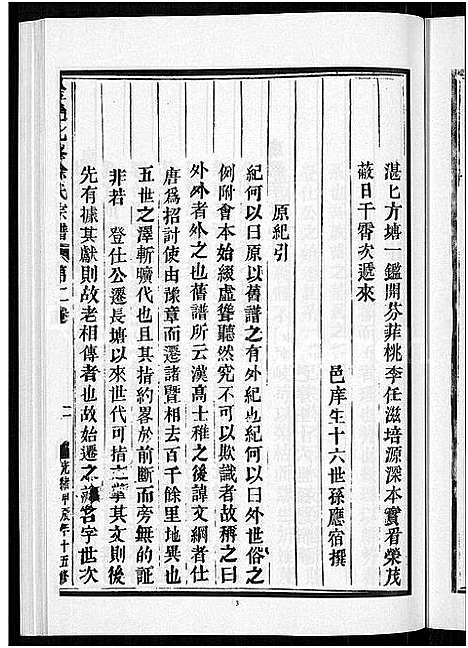 湛匕方塘一鑑開芬菲桃李任滋培源深本實看榮茂
蔽日干霄次遞來
邑庠生十六世孫應宿撰
原紀引
紀何以曰原以舊譜之有外紀也紀何以曰外世俗之
例附會本始綴虛聳聽然究不可以欺識者故稱之曰
外外者外之也舊譜所云漢高士稚之後諱文綱者仕
唐爲招討使由豫章而遷諸暨相去百千餘里地異也
五世之澤斬曠代也且其指約畧於前斷而旁無的証
非若 登仕公遷長塘以來世代可指之掌其文則後
先有據其獻則故老相傳者也故始遷之諱名字世次
徐氏宗譜 第一卷
光緒甲辰年十五修
3